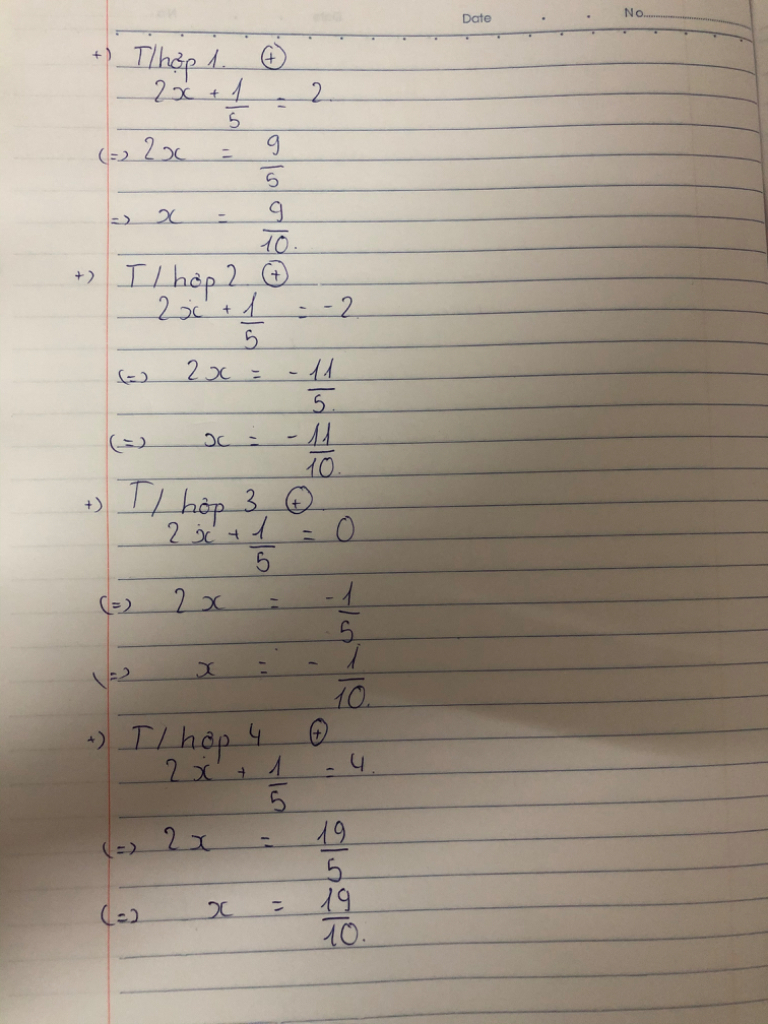 Date . . No.
+) T/hợp 1. ⊕
2x + 1/5 = 2
(=) 2x = 9/5
=) x = 9/10.
+) T/hợp 2 ⊕
2x + 1/5 = -2
(=) 2x = -11/5
(=) x = -11/10.
+) T/hợp 3 ⊕
2x + 1/5 = 0
(=) 2x = -1/5
(=) x = -1/10.
+) T/hợp 4 ⊕
2x + 1/5 = 4.
(=) 2x = 19/5
(=) x = 19/10.